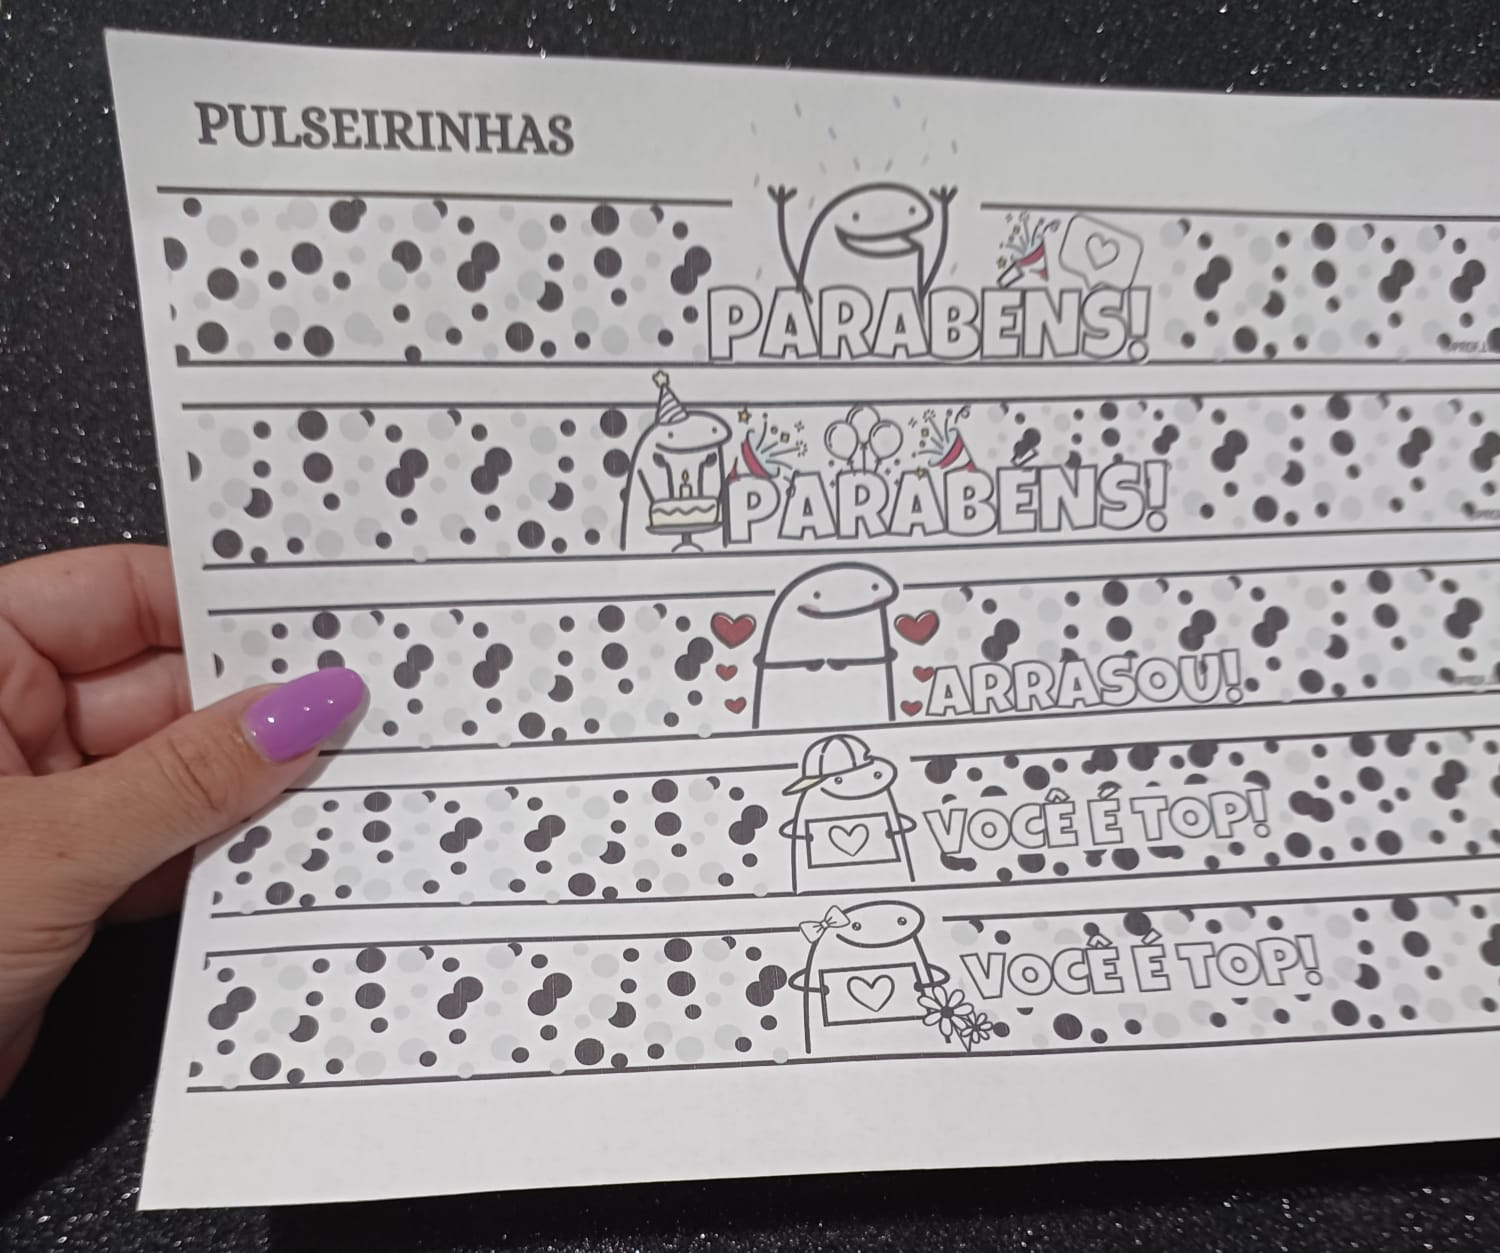 PULSEIRINHAS
PARABÉNS!
PARABÉNS!
ARRASOU!
VOCÊ É TOP!
VOCÊ É TOP!